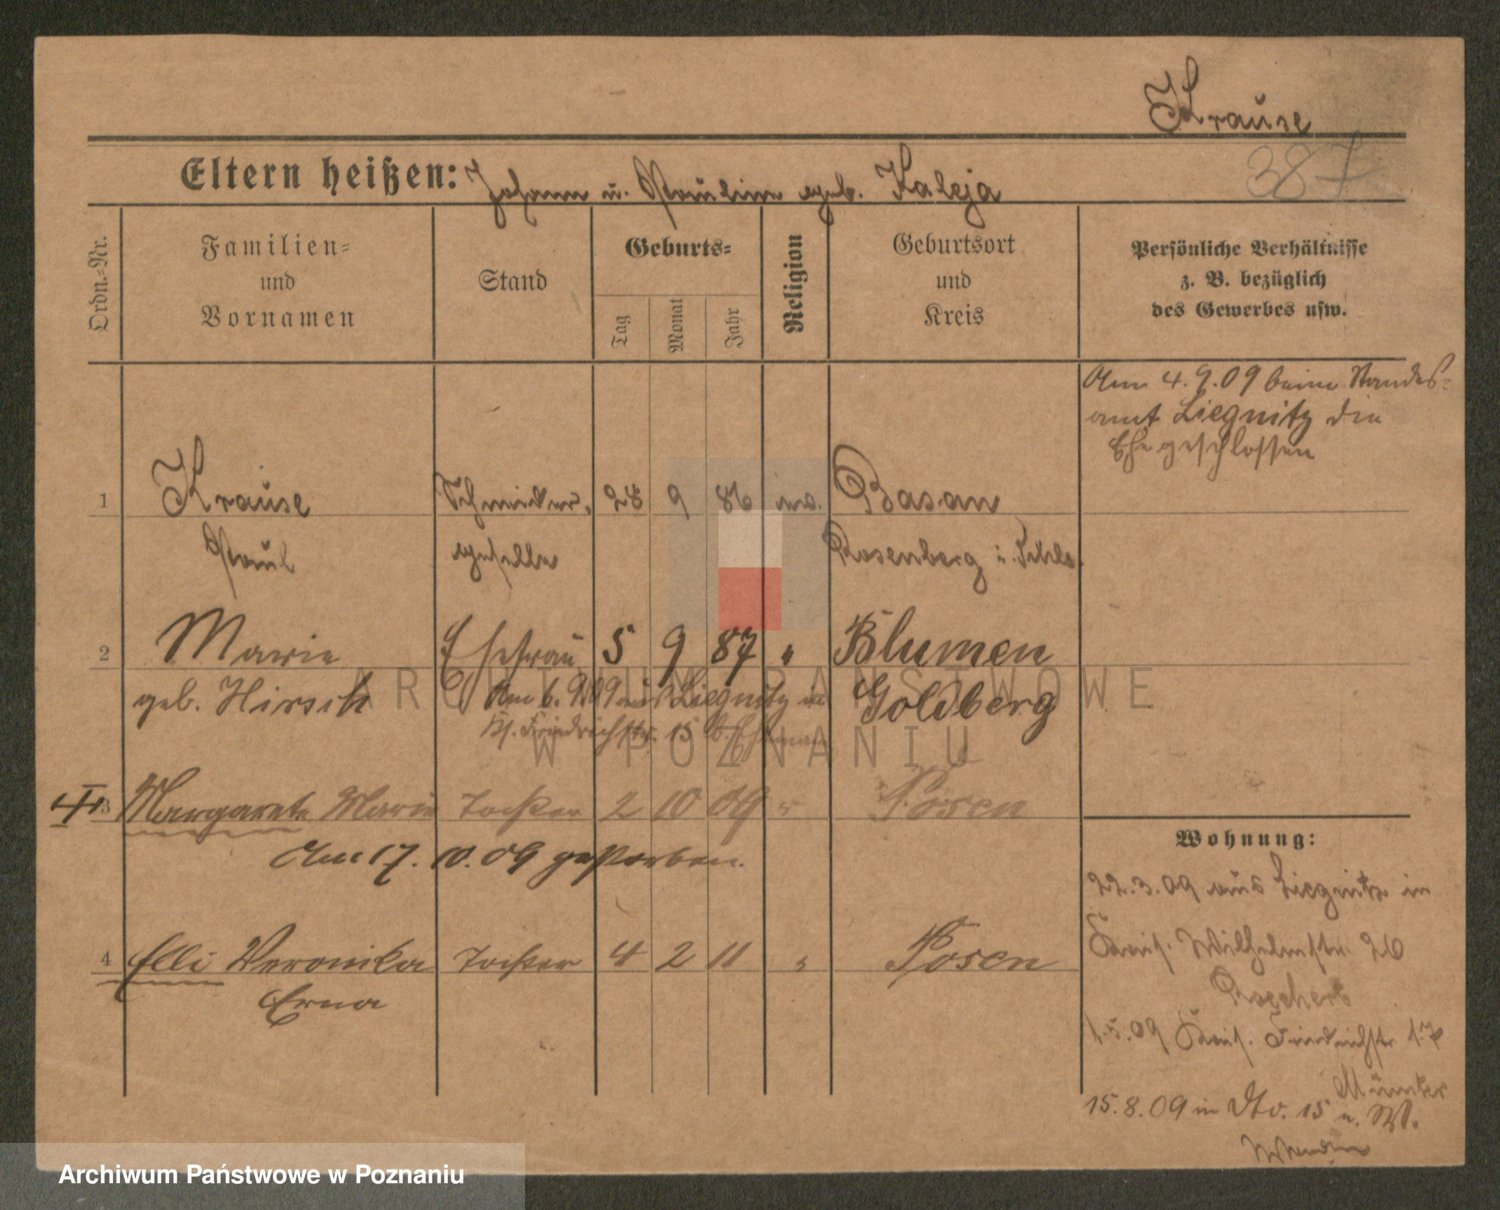 Krause
387
Eltern heißen: Johann u. Pauline geb. Kaleja
Ordn.-Nr.
Familien-
und
Vornamen
Stand
Geburts-
Tag
Monat
Jahr
Religion
Geburtsort
und
Kreis
Persönliche Verhältnisse
z. B. bezüglich
des Gewerbes usw.
Am 4.9.09 beim Standes-
amt Liegnitz die
Ehe geschlossen
1 Krause 28 9 86 Basan
Paul geselle Rosenberg i. Schles.
2 Marie Ehefrau 5 9 87 " Blumen
geb. Hirsch Am 6.9.09 aus Liegnitz Goldberg
Friedrichstr. 15
3 Margarete Marie Tochter 2 10 09 " Posen
Am 17.10.09 gestorben.
4 Elli Veronika Tochter 4 2 11 " Posen
Erna
Wohnung:
22.3.09 aus Liegnitz in
Wilhelmstr. 26
1.5.09 Friedrichstr 17
15.8.09 in Dto. 15
ARCHIWUM PAŃSTWOWE
W POZNANIU
Archiwum Państwowe w Poznaniu